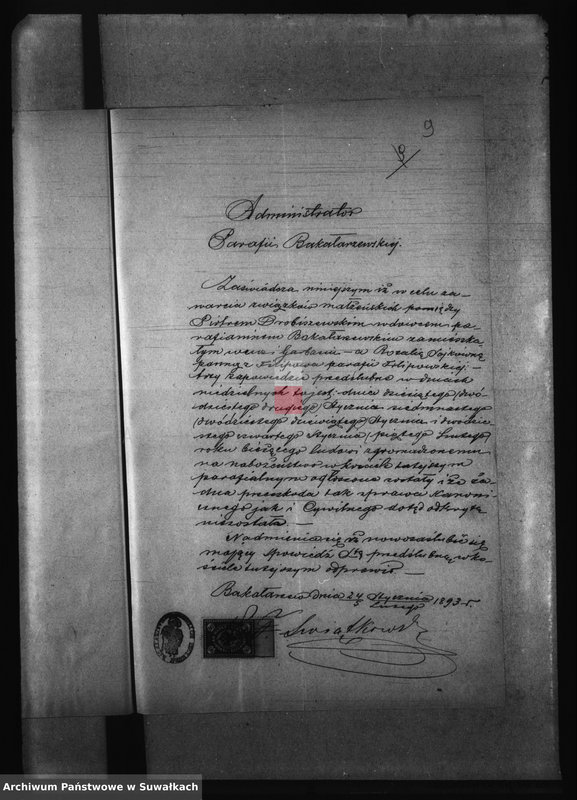 9
8
Administrator
Parafii Bakałarzewskiej.
Zaświadcza niniejszym iż w celu za-
warcia związków małżeńskich pomiędzy
Piotrem Drobiszewskim wdowcem pa-
rafianinem Bakałarzewskim zamieszka-
łym we wsi Garbaś – a Rozalią
Panną z Filipowa parafii Filipowskiej –
trzy zapowiedzie przedślubne w dniach
niedzielnych to jest dnia dziesiątego (dwó-
dziestego drugiego) Stycznia siedmnastego
(dwódziestego dziewiątego) Stycznia i dwódzie-
stego czwartego Stycznia (piątego Lutego)
roku bieżącego ludowi zgromadzonemu
na nabożeństwo w kościele tutejszym
parafialnym ogłoszone zostały i że ża-
dna przeszkoda tak z prawa Kanoni-
cznego jak i Cywilnego dotąd odkrytą
nie została. –
Nadmienia się iż nowozaślubić się
mający Spowiedź Stą przedślubną w ko-
ściele tutejszym odprawił –
Bakałarzewo dnia 24/5 Stycznia/Lutego 1893 r.
Świątkowski
Archiwum Państwowe w Suwałkach